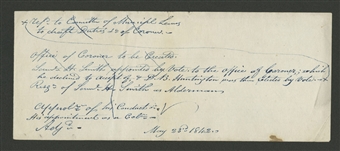 Ref'd to Committe of Municipal Laws
to draft Duties &c of Coroner
Office of Coroner to be Created.
Saml. H. Smith appointed by Vote to the office of Coroner; which
he declined & D. B. Huntington was then Elected by Vote
Resg. of Saml. H. Smith as Alderman
Approval of his Conduct &c
His appointment as a Col.
Adj.
May 23d. 1842.